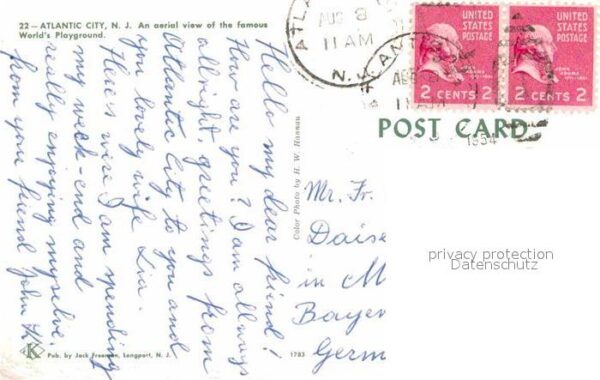 22—ATLANTIC CITY, N. J. An aerial view of the famous
World's Playground.
Hello my dear friend!
How are you? I am allways
allright, greetings from
Atlantic City to you and
you lovely wife
Here's wire I am spending
my week-end and
really enjoying myselve.
from you friend John K.
K
Pub. by Jack Freeman, Longport, N. J.
Color Photo by H. W. Hannau
1783
AUG 8
11 AM
N. J.
ATLANTI
AUG
11 AM
1954
UNITED
STATES
POSTAGE
JOHN
ADAMS
2 CENTS 2
UNITED
STATES
POSTAGE
JOHN
ADAMS
2 CENTS 2
POST CARD
Mr. Fr.
Daise
in M
Bayer
Germ
privacy protection
Datenschutz